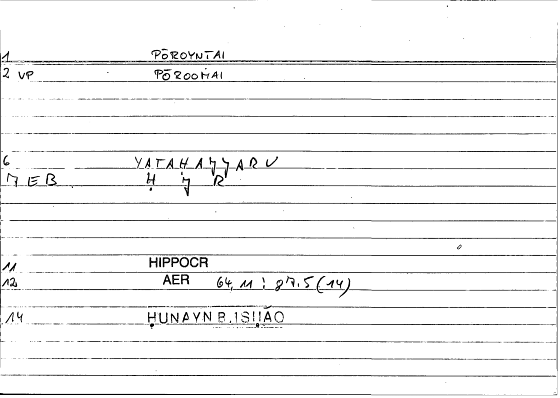 1 PŌROYNTAI
2 VP PŌROOMAI
6 YATAḤAJJARU
7 EB Ḥ J R
11 HIPPOCR
12 AER 64, 11 : 87.5 (14)
14 ḤUNAYN B. ISḤĀQ